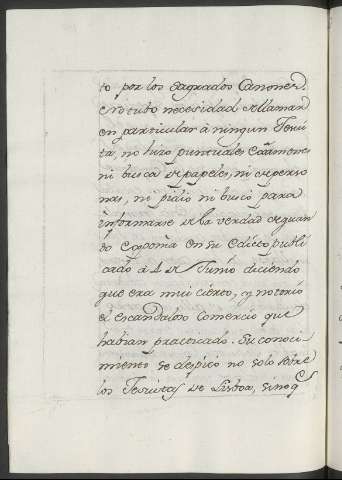 to por los sagrados Canones.
No tubo necesidad de llamar
en particular à ningun Jesui-
ta, no hizo puntuales exámenes
ni busca de papeles, ni de perso
nas, ni pidio ni buscó para
informarse de la verdad de quan
to exponia en su edicto publi
cado á 4 de Junio diciendo
que era mui cierto, y notorio
el escandaloso Comercio que
habian practicado. Su conoci-
miento se despicó no solo sobre
los Jesuitas de Lisboa, sino q.